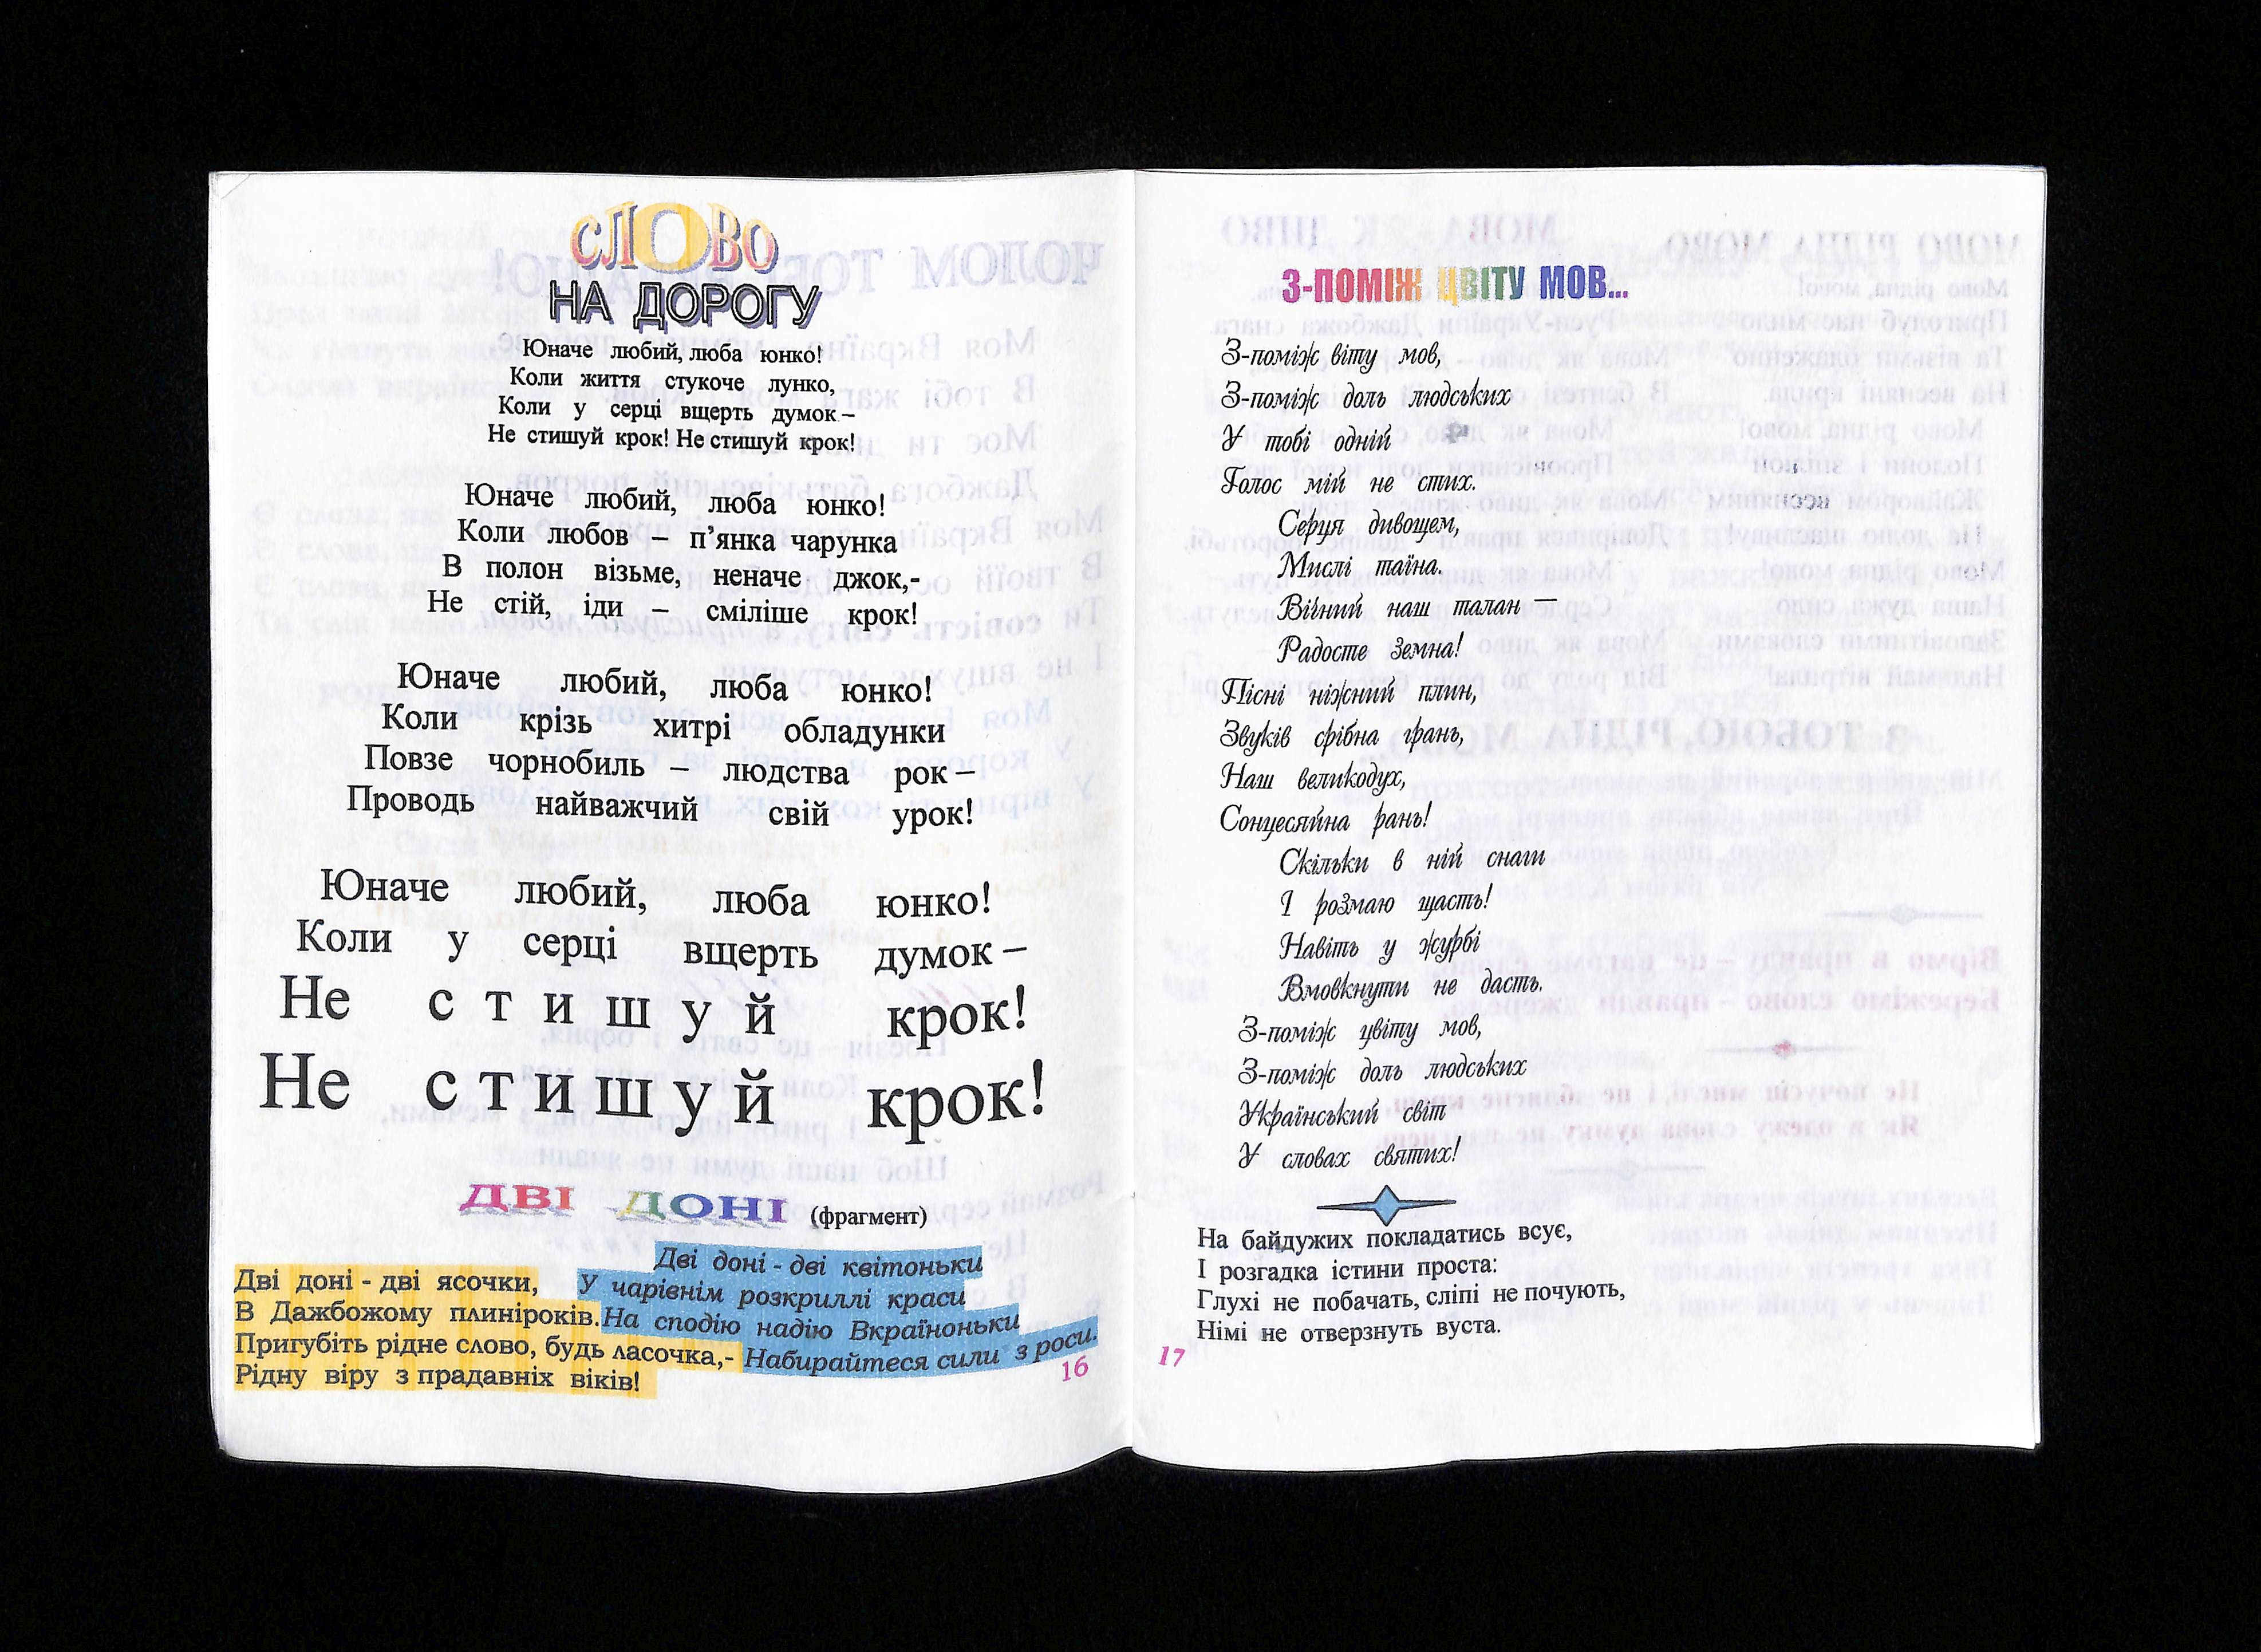 СЛОВО
НА ДОРОГУ
Юначе любий, люба юнко!
Коли життя стукоче лунко,
Коли у серці вщерть думок –
Не стишуй крок! Не стишуй крок!
Юначе любий, люба юнко!
Коли любов – п’янка чарунка
В полон візьме, неначе джок,-
Не стій, іди – сміліше крок!
Юначе любий, люба юнко!
Коли крізь хитрі обладунки
Повзе чорнобиль – людства рок –
Проводь найважчий свій урок!
Юначе любий, люба юнко!
Коли у серці вщерть думок –
Не с т и ш у й крок!
Не с т и ш у й крок!
ДВІ ДОНІ (фрагмент)
Дві доні - дві ясочки,
В Дажбожому плиніроків.
Пригубіть рідне слово, будь ласочка,-
Рідну віру з прадавніх віків!
Дві доні - дві квітоньки
У чарівнім розкриллі краси
На сподію надію Вкраїноньки
Набирайтеся сили з роси.
16
З-ПОМІЖ ЦВІТУ МОВ...
З-поміж віту мов,
З-поміж доль людських
У тобі одній
Голос мій не стих.
Серця дивощем,
Мислі таїна.
Вічний наш талан –
Радосте земна!
Пісні ніжний плин,
Звуків срібна грань,
Наш великодух,
Сонцесяйна рань!
Скільки в ній снаги
І розмаю щасть!
Навіть у журбі
Вмовкнути не дасть.
З-поміж цвіту мов,
З-поміж доль людських
Український світ
У словах святих!
На байдужих покладатись всує,
І розгадка істини проста:
Глухі не побачать, сліпі не почують,
Німі не отверзнуть вуста.
17